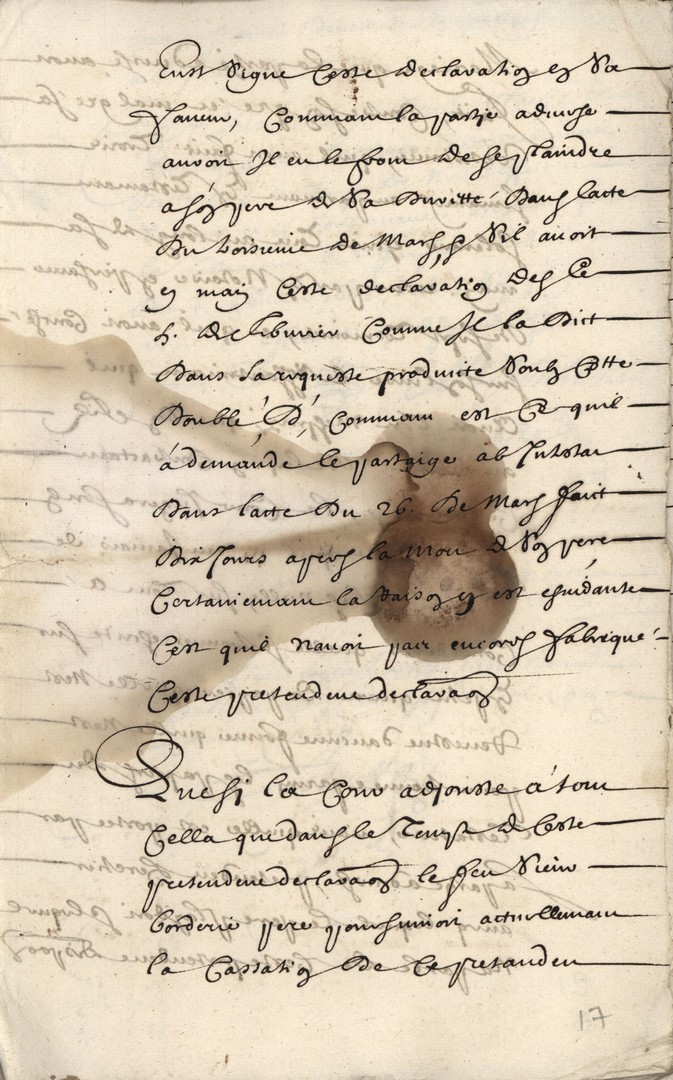 Eust signe ceste declaration en sa
faveur, Commant la partje adverse
auroit Il eu le front de se plaindre
a son pere de sa Dureté Dans lacte
Du troisieme de Mars, s'il avoit
en main ceste declaration des le
5. de febvrier Comme Il la Dict
Dans sa requeste produitte soubz Cotte
Doublé D, Commant est Ce quil
á demandé le partaige ab Intestat
Dans lacte Du 26. De Mars faict
Dix Jours apres la Mort de son pere
Certainemant la Raison en est esvidante
Cest quil navoit pas encores fabriqué
Ceste pretendeue declaraon
Que si la Cour adjouste á tout
Cella que dans le Temps de Ceste
pretendeue declaraon le feu sieur
borderie pere poursuivoit actuellemant
la Cassation De Ce pretandeu
17